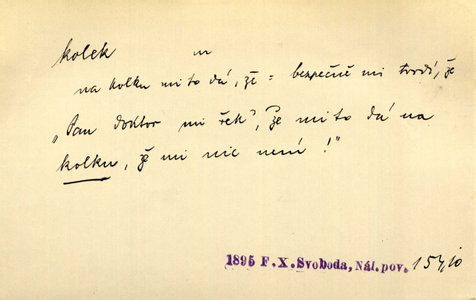 kolek m
na kolku mi to dá, že = bezpečně mi tvrdí, že
„Pan doktor mi řek', že mi to dá na
kolku, že mi nic není!"
1895 F. X. Svoboda, Nál. pov. 154,10